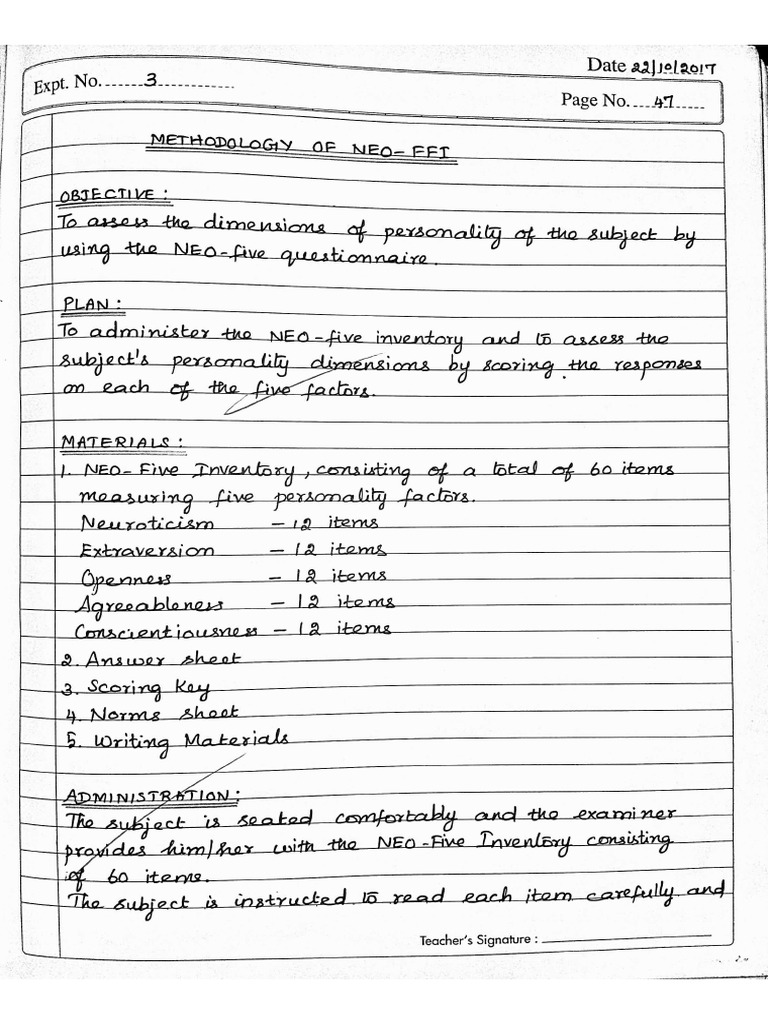 Date 22/10/2017
Expt. No. 3
Page No. 47
METHODOLOGY OF NEO-FFI
OBJECTIVE:
To assess the dimensions of personality of the subject by
using the NEO-five questionnaire.
PLAN:
To administer the NEO-five inventory and to assess the
subject's personality dimensions by scoring the responses
on each of the five factors.
MATERIALS:
1. NEO-Five Inventory, consisting of a total of 60 items
measuring five personality factors.
Neuroticism - 12 items
Extraversion - 12 items
Openness - 12 items
Agreeableness - 12 items
Conscientiousness - 12 items
2. Answer sheet
3. Scoring Key
4. Norms sheet
5. Writing Materials
ADMINISTRATION:
The subject is seated comfortably and the examiner
provides him/her with the NEO-Five Inventory consisting
of 60 items.
The subject is instructed to read each item carefully and
Teacher's Signature :